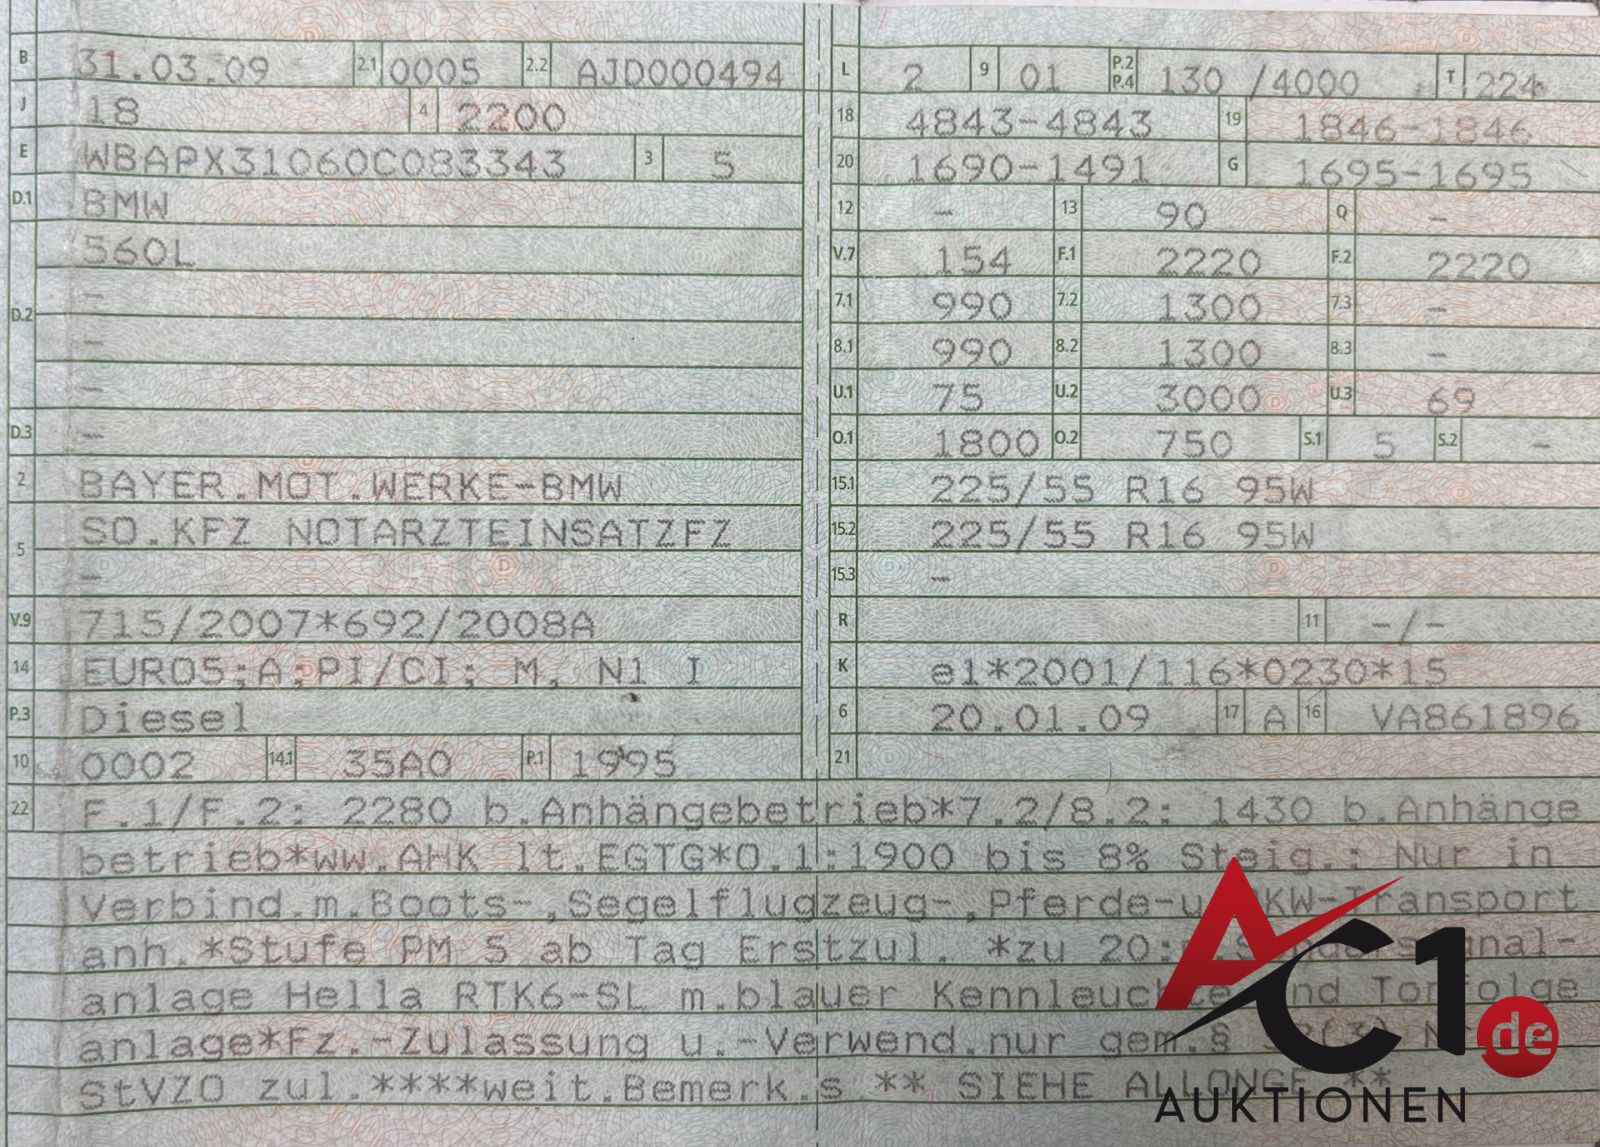 B 31.03.09 2.1 0005 2.2 AJD000494
J 18 4 2200
E WBAPX31060C083343 3 5
D.1 BMW
560L
-
D.2
-
-
D.3 -
2 BAYER.MOT.WERKE-BMW
SO.KFZ NOTARZTEINSATZFZ
5
-
V.9 715/2007*692/2008A
14 EURO5;A;PI/CI; M, N1 I
P.3 Diesel
10 0002 14.1 35A0 P.1 1995
L 2 9 01 P.2 P.4 130 /4000 T 224
18 4843-4843 19 1846-1846
20 1690-1491 G 1695-1695
12 - 13 90 Q -
V.7 154 F.1 2220 F.2 2220
7.1 990 7.2 1300 7.3 -
8.1 990 8.2 1300 8.3 -
U.1 75 U.2 3000 U.3 69
O.1 1800 O.2 750 S.1 5 S.2 -
15.1 225/55 R16 95W
15.2 225/55 R16 95W
15.3 -
R 11 -/-
K e1*2001/116*0230*15
6 20.01.09 17 A 16 VA861896
21
22 F.1/F.2: 2280 b.Anhängebetrieb*7.2/8.2: 1430 b.Anhänge
betrieb*ww.AHK lt.EGTG*O.1:1900 bis 8% Steig.: Nur in
Verbind.m.Boots-,Segelflugzeug-,Pferde-u. Transport
anh.*Stufe PM 5 ab Tag Erstzul. *zu 20:
anlage Hella RTK6-SL m.blauer Tonfolge
anlage*Fz.-Zulassung u.-Verwend.nur gem.§
StVZO zul.****weit.Bemerk.s ** SIEHE ALLONGE **
AC1.de
AUKTIONEN